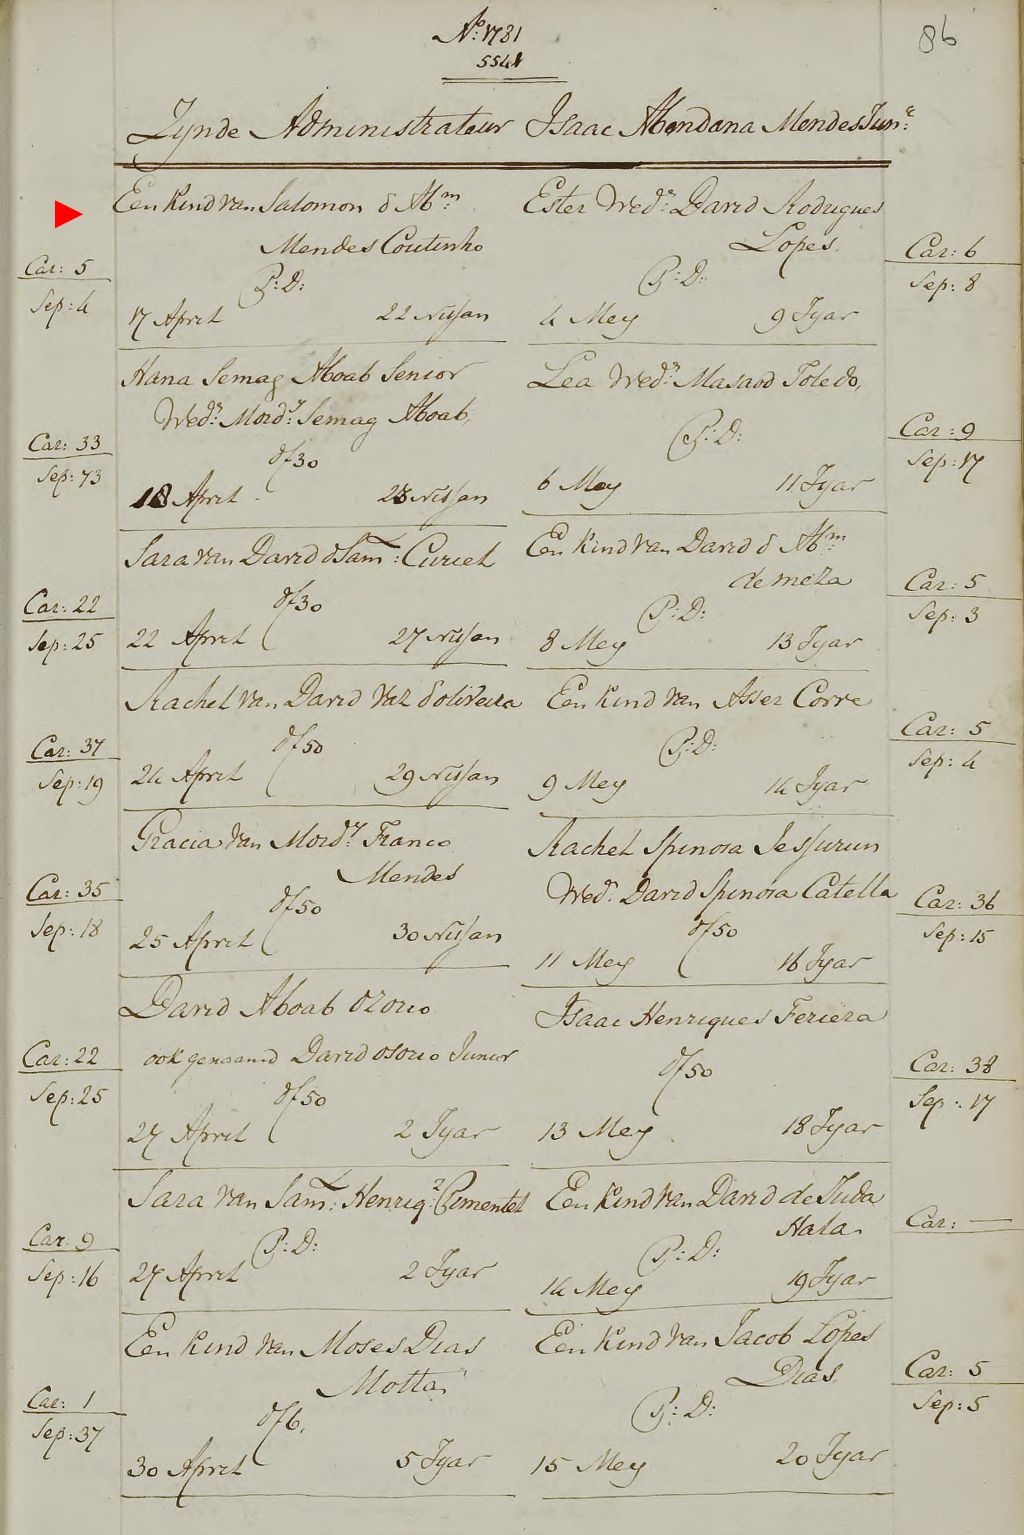 No: 1781
5541
86
Zynde Administrateur Isaac Abendana Mendes Junr:
Een Kind van Salomon d Abm:
Mendes Coutinho
P: D:
17 April 22 Nissan
Car: 5
Sep: 4
Hana Semag Aboab Senior
Wedr: Mordy: Semag Aboab,
of 30
18 April 23 Nissan
Car: 33
Sep: 73
Sara van David d Saml: Curiel
of 30
22 April 27 Nissan
Car: 22
Sep: 25
Rachel van David vaz d'oliveira
of 50
24 April 29 Nissan
Car: 37
Sep: 19
Gracia van Mordy: Franco
Mendes
of 50
25 April 30 Nissan
Car: 35
Sep: 18
David Aboab Ozorio
ook genaamd David osorio Junior
of 50
27 April 2 Jyar
Car: 22
Sep: 25
Sara van Saml: Henriqz: Pimentel
P: D:
27 April 2 Jyar
Car: 9
Sep: 16
Een Kind van Moses Dias
Motta
of 6.
30 April 5 Jyar
Car: 1
Sep: 37
Ester Wedr: David Rodrigues
Lopes.
P: D:
4 Mey 9 Jyar
Car: 6
Sep: 8
Lea Wedr: Masaod Toledo,
P: D:
6 Mey 11 Jyar
Car: 9
Sep: 17
Een Kind van David d Abm:
de meza
P: D:
8 Mey 13 Jyar
Car: 5
Sep: 3
Een Kind van Asser Corre
P: D:
9 Mey 14 Jyar
Car: 5
Sep: 4
Rachel Spinosa Jessurun
Wedr: David Spinosa Catella
of 50
11 Mey 16 Jyar
Car: 36
Sep: 15
Isaac Henriques Feriera
of 50
13 Mey 18 Jyar
Car: 38
Sep: 17
Een Kind van David de Juda
Hata
P: D:
14 Mey 19 Jyar
Car: —
Een Kind van Jacob Lopes
Dias.
P: D:
15 Mey 20 Jyar
Car: 5
Sep: 5